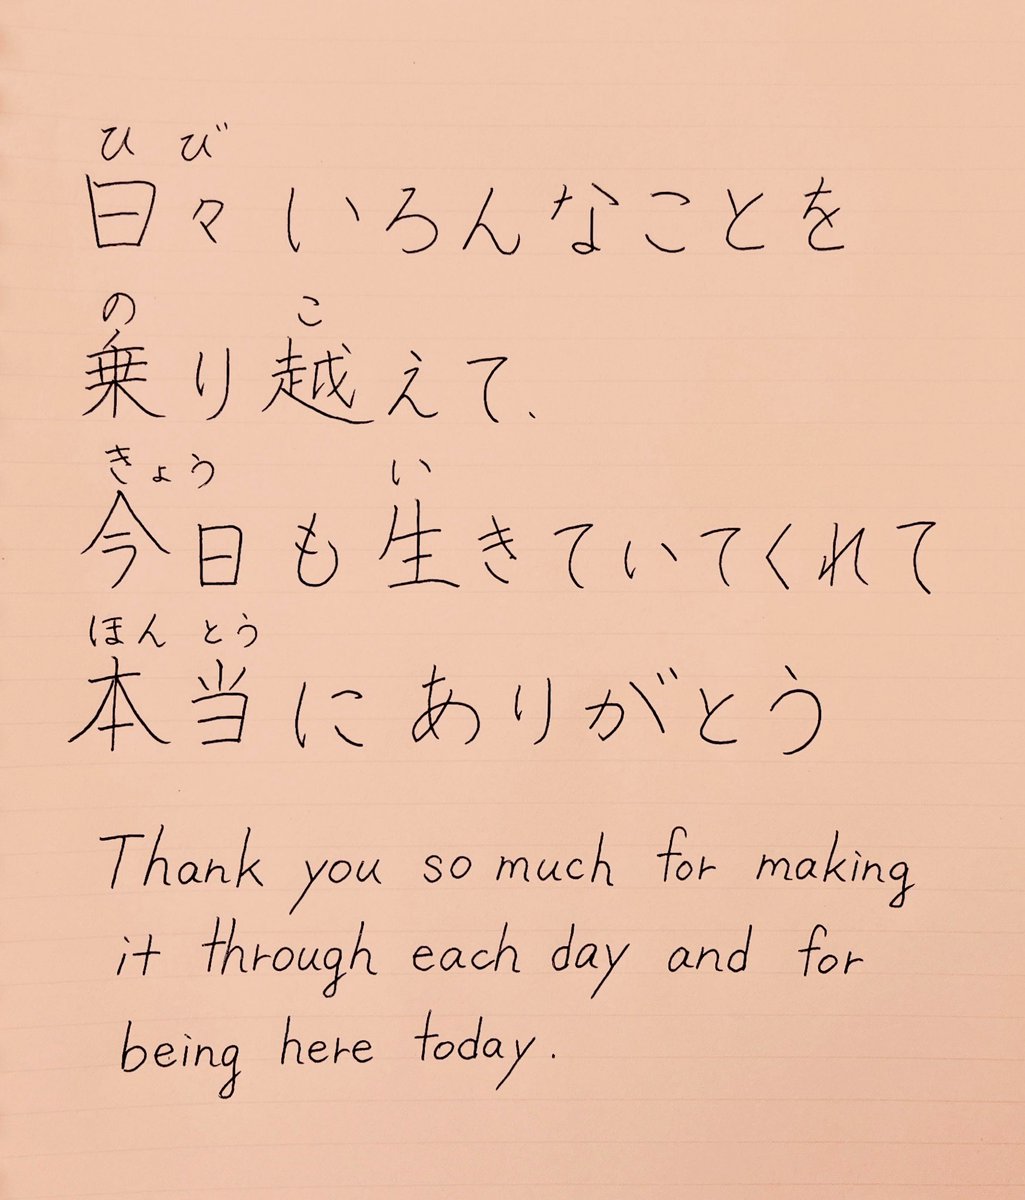 ひび
日々いろんなことを
の こ
乗り越えて、
きょう い
今日も生きていてくれて
ほんとう
本当にありがとう
Thank you so much for making
it through each day and for
being here today.